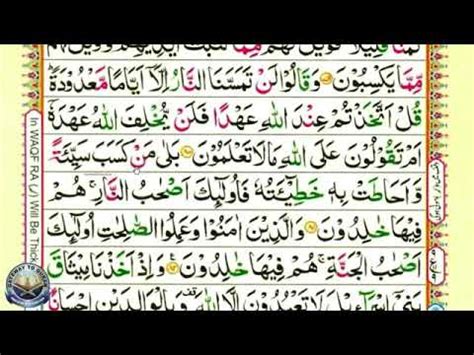 ثَمَنًا قَلِيْلًا فَوَيْلٌ لَّهُمْ مِّمَّا كَتَبَتْ اَيْدِيْهِمْ وَوَيْلٌ
مِّمَّا يَكْسِبُوْنَ ۝ وَقَالُوْا لَنْ تَمَسَّنَا النَّارُ اِلَّآ اَيَّامًا مَّعْدُوْدَةً ؕ
قُلْ اَتَّخَذْتُمْ عِنْدَ اللّٰهِ عَهْدًا فَلَنْ يُّخْلِفَ اللّٰهُ عَهْدَهٗۤ
اَمْ تَقُوْلُوْنَ عَلَى اللّٰهِ مَا لَا تَعْلَمُوْنَ ۝ بَلٰى مَنْ كَسَبَ سَيِّئَةً
وَّاَحَاطَتْ بِهٖ خَطِيْٓئَتُهٗ فَاُولٰٓئِكَ اَصْحٰبُ النَّارِ ۚ هُمْ
فِيْهَا خٰلِدُوْنَ ۝ وَالَّذِيْنَ اٰمَنُوْا وَعَمِلُوا الصّٰلِحٰتِ اُولٰٓئِكَ
اَصْحٰبُ الْجَنَّةِ ۚ هُمْ فِيْهَا خٰلِدُوْنَ ۝ وَاِذْ اَخَذْنَا مِيْثَاقَ
بَنِيْٓ اِسْرَآءِيْلَ لَا تَعْبُدُوْنَ اِلَّا اللّٰهَ وَبِالْوَالِدَيْنِ اِحْسَانًا
In WAQF RA (ر) Will Be Thick